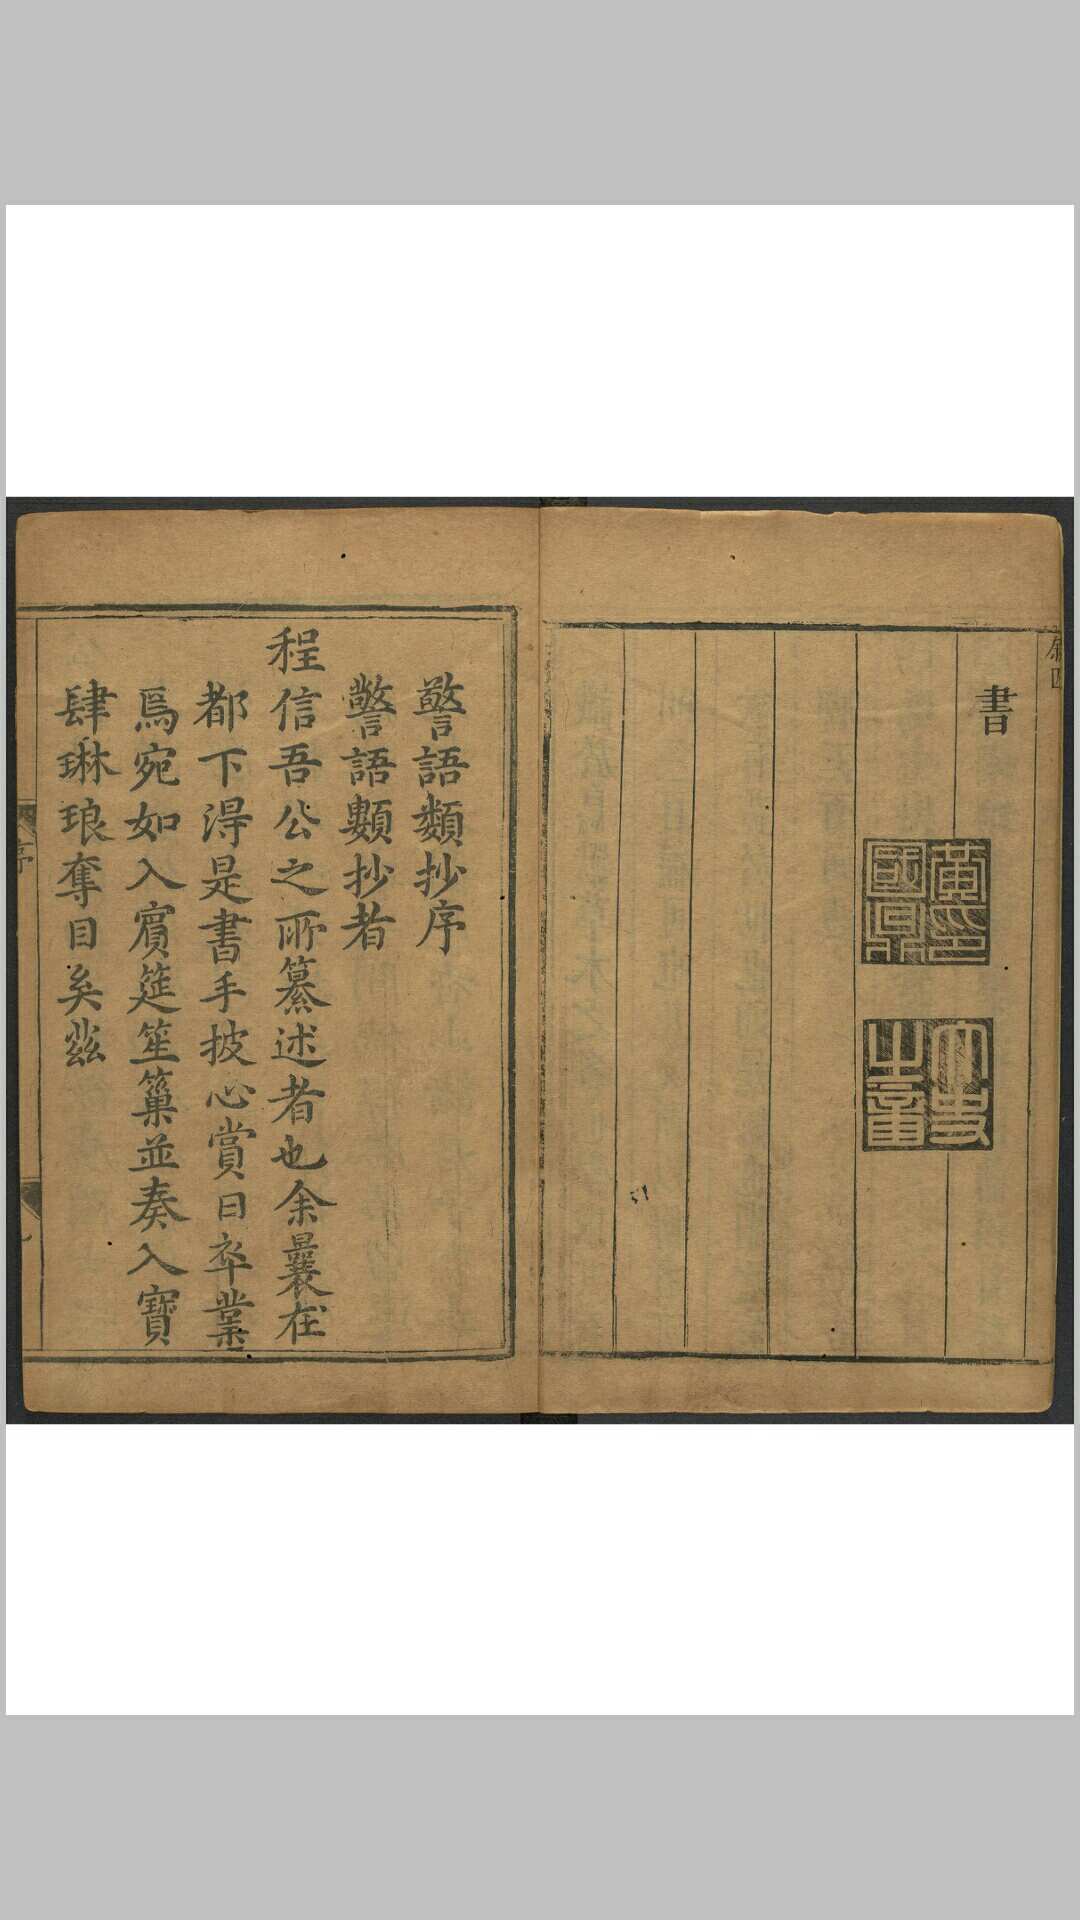 書
黃印國鼎
大史之章
警語類抄序
警語類抄者
程信吾公之所纂述者也余曩在
都下得是書手披心賞日卒業
焉宛如入賓筵笙篁並奏入寶
肆琳琅奪目矣茲
序